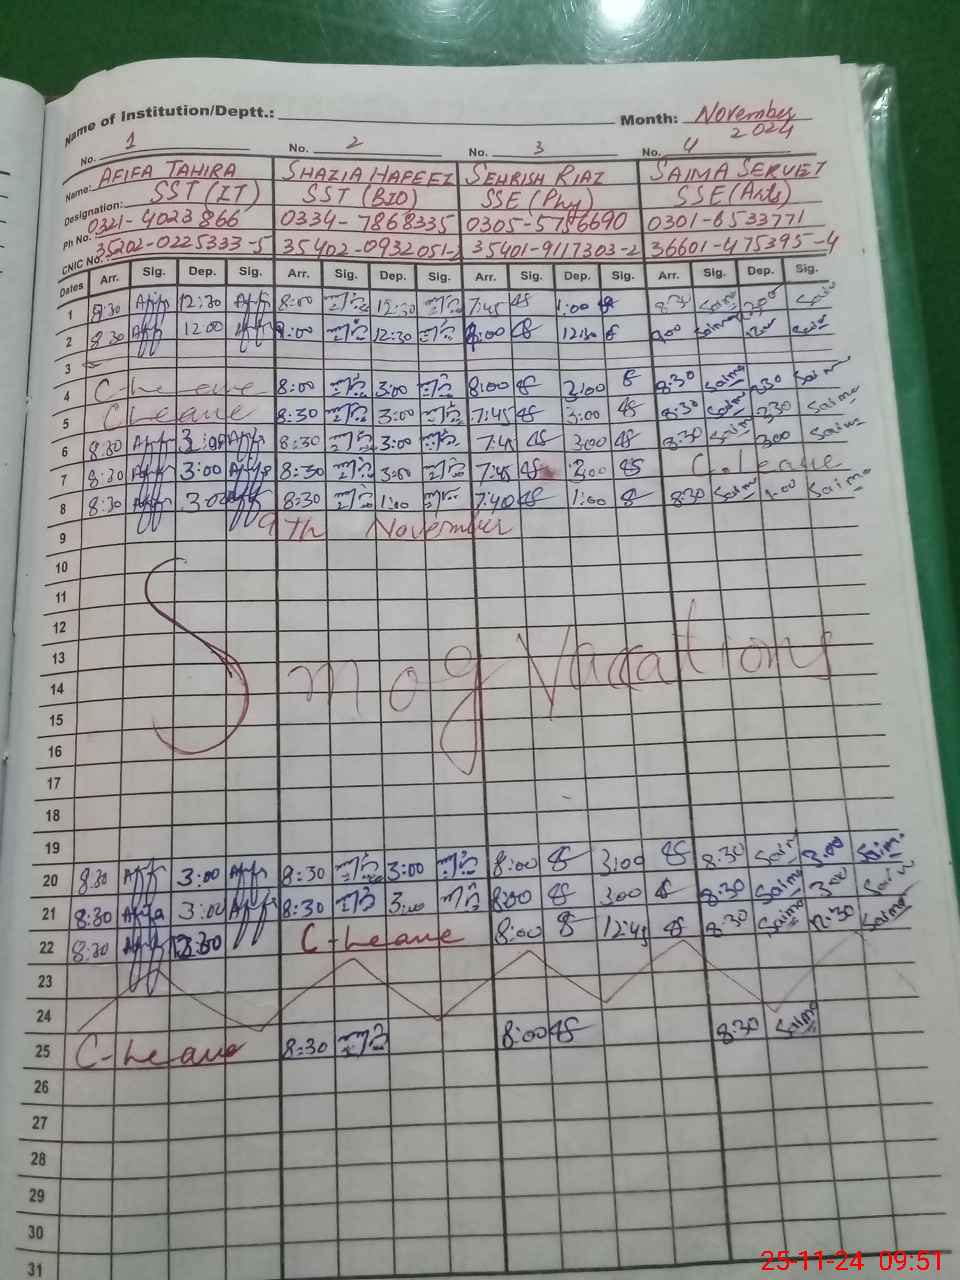 Name of Institution/Deptt.: Month: November 2024
No. 1 No. 2 No. 3 No. 4
Name: AFIFA TAHIRA SHAZIA HAFEEZ SEHRISH RIAZ SAIMA SERVET
Designation: SST (IT) SST (BIO) SSE (Phy) SSE (Arts)
Ph No. 0321-4023866 0334-7868335 0305-5756690 0301-6533771
CNIC No. 35202-0225333-5 35402-0932051-2 35401-9117303-2 36601-475395-4
Dates Arr. Sig. Dep. Sig. Arr. Sig. Dep. Sig. Arr. Sig. Dep. Sig. Arr. Sig. Dep. Sig.
1 8:30 12:30 8:00 12:30 7:45 1:00 8:30 Saima Saima
2 8:30 12:00 8:00 12:30 8:00 12:30 9:00 Saima Saima
3
4 C-Leave 8:00 3:00 8:00 3:00 8:30 Saima 2:30 Saima
5 C Leave 8:30 3:00 7:45 3:00 8:30 Saima 2:30 Saima
6 8:30 3:00 8:30 3:00 7:45 3:00 8:30 Saima 3:00 Saima
7 8:30 3:00 8:30 3:00 7:45 3:00 C-Leave
8 8:30 3:00 8:30 1:00 7:40 1:00 8:30 Saima 1:00 Saima
9 9th November
10
11
12
13 Smog Vacations
14
15
16
17
18
19
20 8:30 Aff 3:00 Aff 8:30 3:00 8:00 3:00 8:30 Saima 3:00 Saima
21 8:30 Afifa 3:00 Aff 8:30 3:00 8:00 3:00 8:30 Saima 3:00 Saima
22 8:30 Aff C-Leave 8:00 12:45 8:30 Saima 12:30 Saima
23
24
25 C-Leave 8:30 8:00 8:30 Saima
26
27
28
29
30
31
25-11-24 09:51